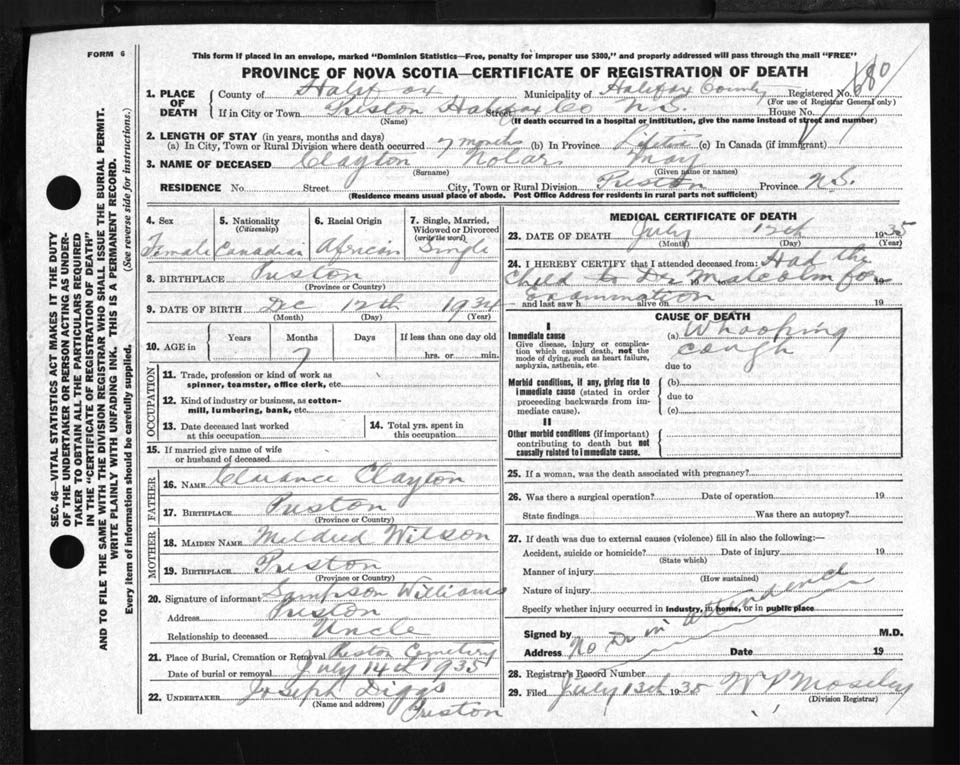 FORM 6
This form if placed in an envelope, marked "Dominion Statistics—Free, penalty for improper use $300," and properly addressed will pass through the mail "FREE"
PROVINCE OF NOVA SCOTIA—CERTIFICATE OF REGISTRATION OF DEATH
1. PLACE OF DEATH
County of Halifax Municipality of Halifax County Registered No. 680
(For use of Registrar General only)
If in City or Town Preston Halifax Co N.S. Street House No.
(Name) (If death occurred in a hospital or institution, give the name instead of street and number)
2. LENGTH OF STAY (in years, months and days)
(a) In City, Town or Rural Division where death occurred 7 months (b) In Province Lifetime (c) In Canada (if immigrant)
3. NAME OF DECEASED Clayton Nolar May
(Surname) (Given name or names)
RESIDENCE No. Street City, Town or Rural Division Preston Province N.S.
(Residence means usual place of abode. Post Office Address for residents in rural parts not sufficient)
4. Sex 5. Nationality (Citizenship) 6. Racial Origin 7. Single, Married, Widowed or Divorced (write the word)
Female Canadian African Single
8. BIRTHPLACE Preston
(Province or Country)
9. DATE OF BIRTH Dec 12th 1934
(Month) (Day) (Year)
10. AGE in Years Months Days If less than one day old
7 hrs. or min.
OCCUPATION
11. Trade, profession or kind of work as spinner, teamster, office clerk, etc.
12. Kind of industry or business, as cotton-mill, lumbering, bank, etc.
13. Date deceased last worked at this occupation
14. Total yrs. spent in this occupation
15. If married give name of wife or husband of deceased
FATHER
16. NAME Clarance Clayton
17. BIRTHPLACE Preston
(Province or Country)
MOTHER
18. MAIDEN NAME Mildred Wilson
19. BIRTHPLACE Preston
(Province or Country)
20. Signature of informant Simpson Williams
Address Preston
Relationship to deceased Uncle
21. Place of Burial, Cremation or Removal Preston Cemetery
Date of burial or removal July 14th 1935
22. UNDERTAKER Joseph Diggs
(Name and address) Preston
MEDICAL CERTIFICATE OF DEATH
23. DATE OF DEATH July 12th 1935
(Month) (Day) (Year)
24. I HEREBY CERTIFY that I attended deceased from: Had the
Child to Dr Malcolm for 19 to
Examination
and last saw h alive on 19
CAUSE OF DEATH
I
Immediate cause
Give disease, injury or complication which caused death, not the mode of dying, such as heart failure, asphyxia, asthenia, etc.
(a) Whooping
cough
due to
Morbid conditions, if any, giving rise to immediate cause (stated in order proceeding backwards from immediate cause).
(b)
due to
(c)
II
Other morbid conditions (if important) contributing to death but not causally related to immediate cause.
25. If a woman, was the death associated with pregnancy?
26. Was there a surgical operation? Date of operation 19
State findings Was there an autopsy?
27. If death was due to external causes (violence) fill in also the following:—
Accident, suicide or homicide? Date of injury 19
(State which)
Manner of injury
(How sustained)
Nature of injury
Specify whether injury occurred in industry, in home, or in public place
Signed by M.D.
No Dr in attendence
Address Date 19
28. Registrar's Record Number
29. Filed July 13th 1935 W P Moseley
(Division Registrar)
SEC. 46—VITAL STATISTICS ACT MAKES IT THE DUTY
OF THE UNDERTAKER OR PERSON ACTING AS UNDER-
TAKER TO OBTAIN ALL THE PARTICULARS REQUIRED
IN THE "CERTIFICATE OF REGISTRATION OF DEATH"
AND TO FILE THE SAME WITH THE DIVISION REGISTRAR WHO SHALL ISSUE THE BURIAL PERMIT.
WRITE PLAINLY WITH UNFADING INK. THIS IS A PERMANENT RECORD.
Every item of information should be carefully supplied. (See reverse side for instructions.)